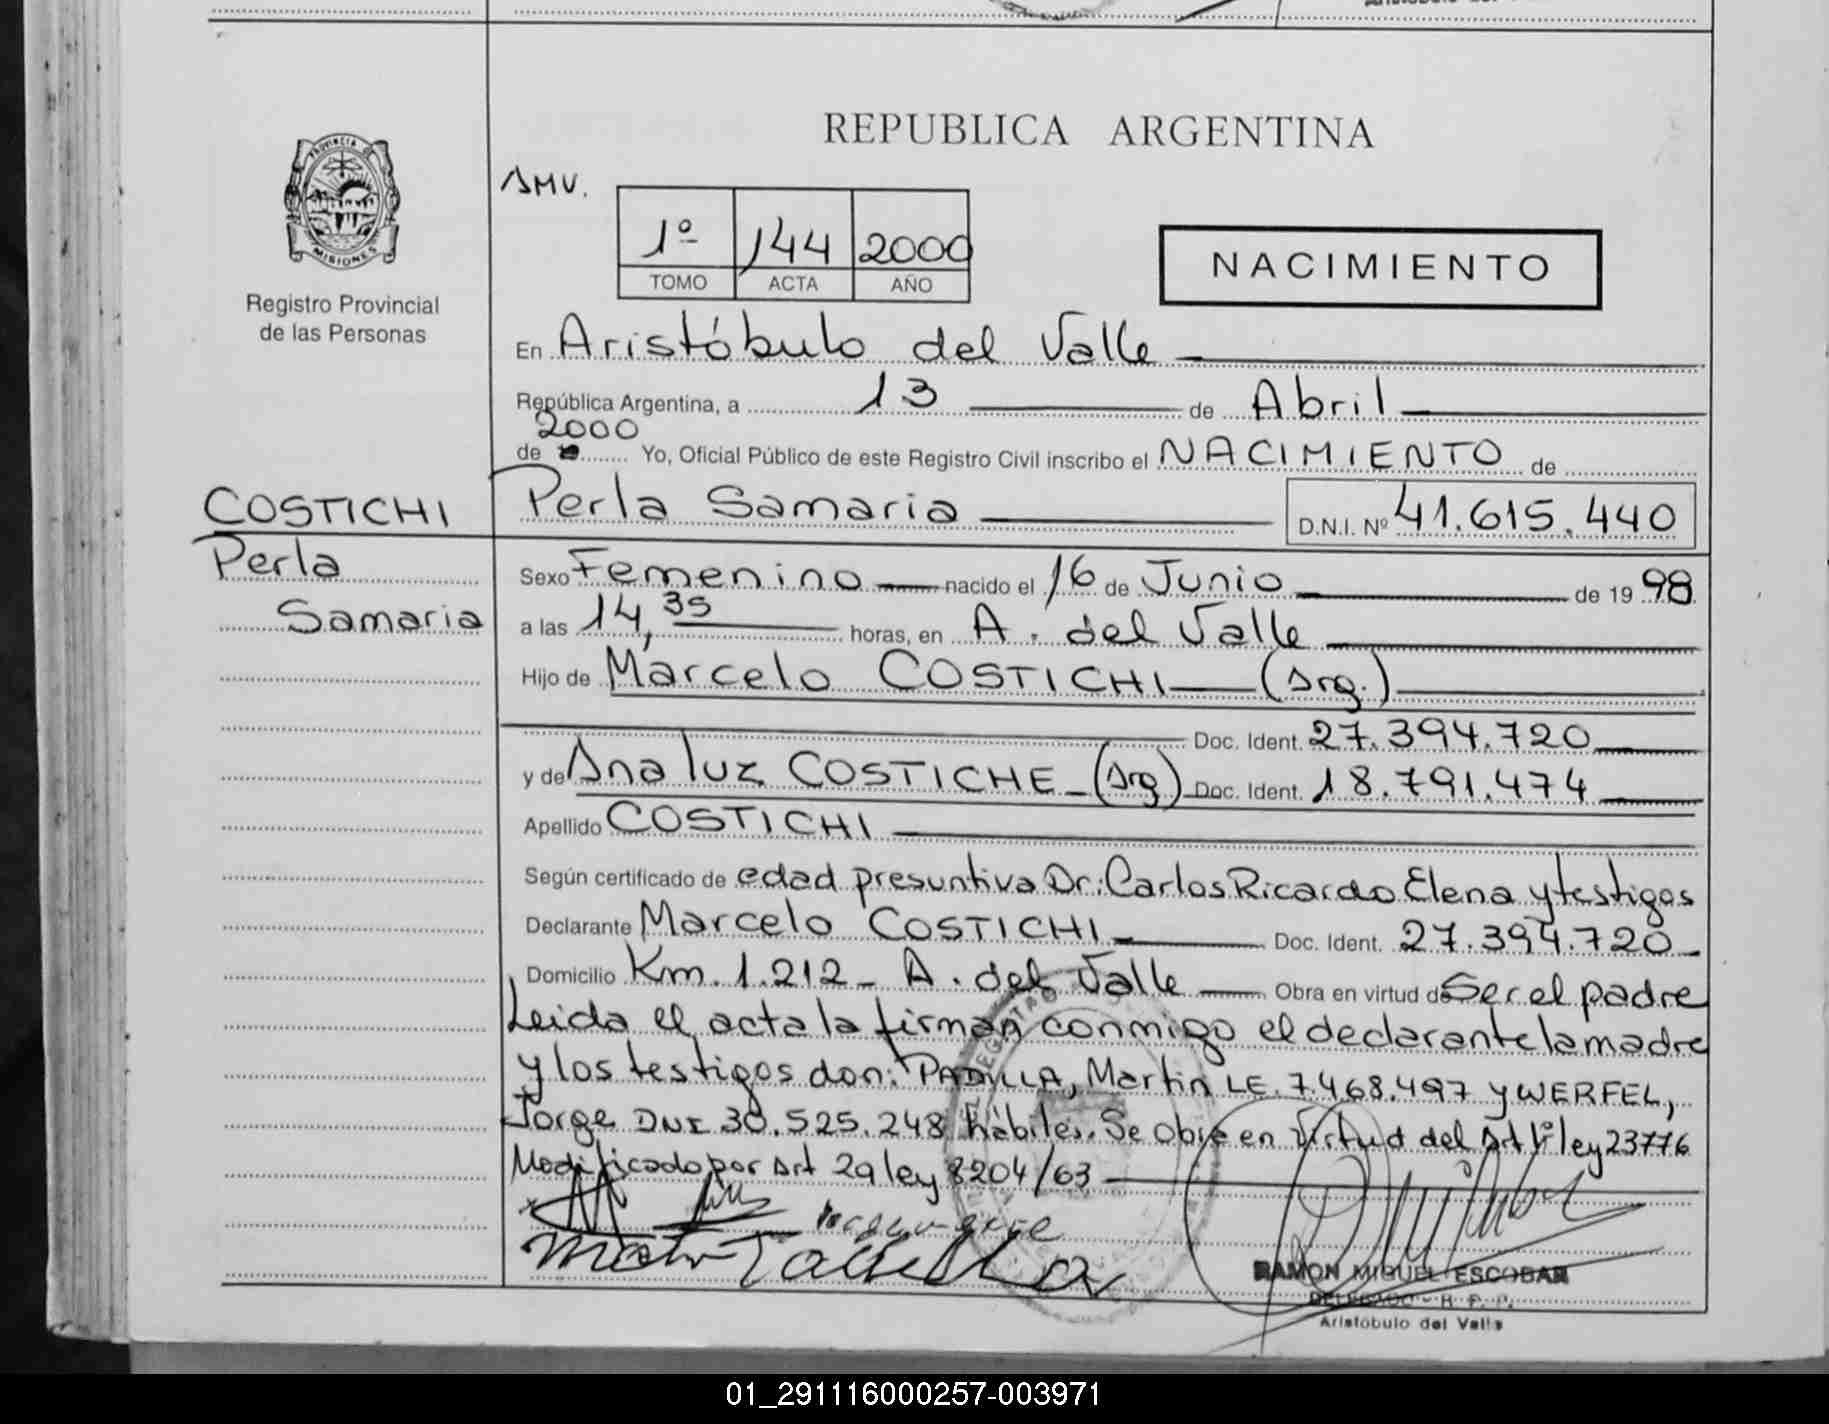 PROVINCIA DE
MISIONES
Registro Provincial
de las Personas
REPUBLICA ARGENTINA
SMV.
1º 144 2000
TOMO ACTA AÑO
NACIMIENTO
En Aristóbulo del Valle
República Argentina, a 13 de Abril
2000
de Yo, Oficial Público de este Registro Civil inscribo el NACIMIENTO de
COSTICHI
Perla Samaria D.N.I. Nº 41.615.440
Perla
Samaria
Sexo Femenino nacido el 16 de Junio de 19 98
a las 14,35 horas, en A. del Valle
Hijo de Marcelo COSTICHI (Arg.)
Doc. Ident. 27.394.720
y de Ana luz COSTICHE (Arg) Doc. Ident. 18.791.474
Apellido COSTICHI
Según certificado de edad presuntiva Dr: Carlos Ricardo Elena y testigos
Declarante Marcelo COSTICHI Doc. Ident. 27.394.720
Domicilio Km. 1.212 - A. del Valle Obra en virtud de Ser el padre
Leida el acta la firman conmigo el declarante la madre
y los testigos don: PADILLA, Martin LE. 7.468.497 y WERFEL,
Jorge DNI 30.525.248 hábiles. Se obra en virtud del Art 1º ley 23776
Modificado por Art 29 ley 8204/63
RAMON MIGUEL ESCOBAR
DELEGADO - R. P. P.
Aristobulo del Valle
01_291116000257-003971